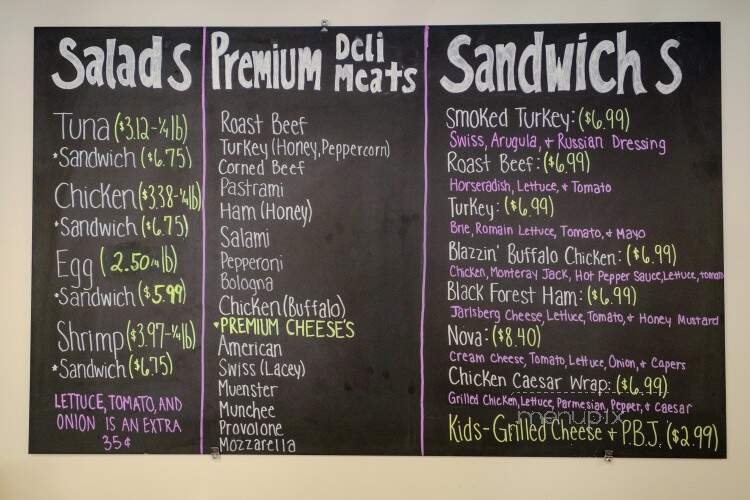 Salads
Tuna ($3.12-1/4 lb)
*Sandwich ($6.75)
Chicken ($3.38-1/4 lb)
*Sandwich ($6.75)
Egg (2.50 1/4 lb)
*Sandwich ($5.99)
Shrimp ($3.97-1/4 lb)
*Sandwich ($6.75)
LETTUCE, TOMATO, AND
ONION IS AN EXTRA
35¢
PREMIUM DELI
MEATS
Roast Beef
Turkey (Honey, Peppercorn)
Corned Beef
Pastrami
Ham (Honey)
Salami
Pepperoni
Bologna
Chicken (Buffalo)
♥PREMIUM CHEESE'S
American
Swiss (Lacey)
Muenster
Munchee
Provolone
Mozzarella
Sandwichs
Smoked Turkey: ($6.99)
Swiss, Arugula, + Russian Dressing
Roast Beef: ($6.99)
Horseradish, Lettuce, + Tomato
Turkey: ($6.99)
Brie, Romain Lettuce, Tomato, + Mayo
Blazzin' Buffalo Chicken: ($6.99)
Chicken, Monteray Jack, Hot Pepper Sauce, Lettuce, Tomato
Black Forest Ham: ($6.99)
Jarlsberg Cheese, Lettuce, Tomato, + Honey Mustard
Nova: ($8.40)
Cream Cheese, Tomato, Lettuce, Onion, + Capers
Chicken Caesar Wrap: ($6.99)
Grilled Chicken, Lettuce, Parmesian, Pepper, + Caesar
menupix
Kids-Grilled Cheese + P.B.J. ($2.99)